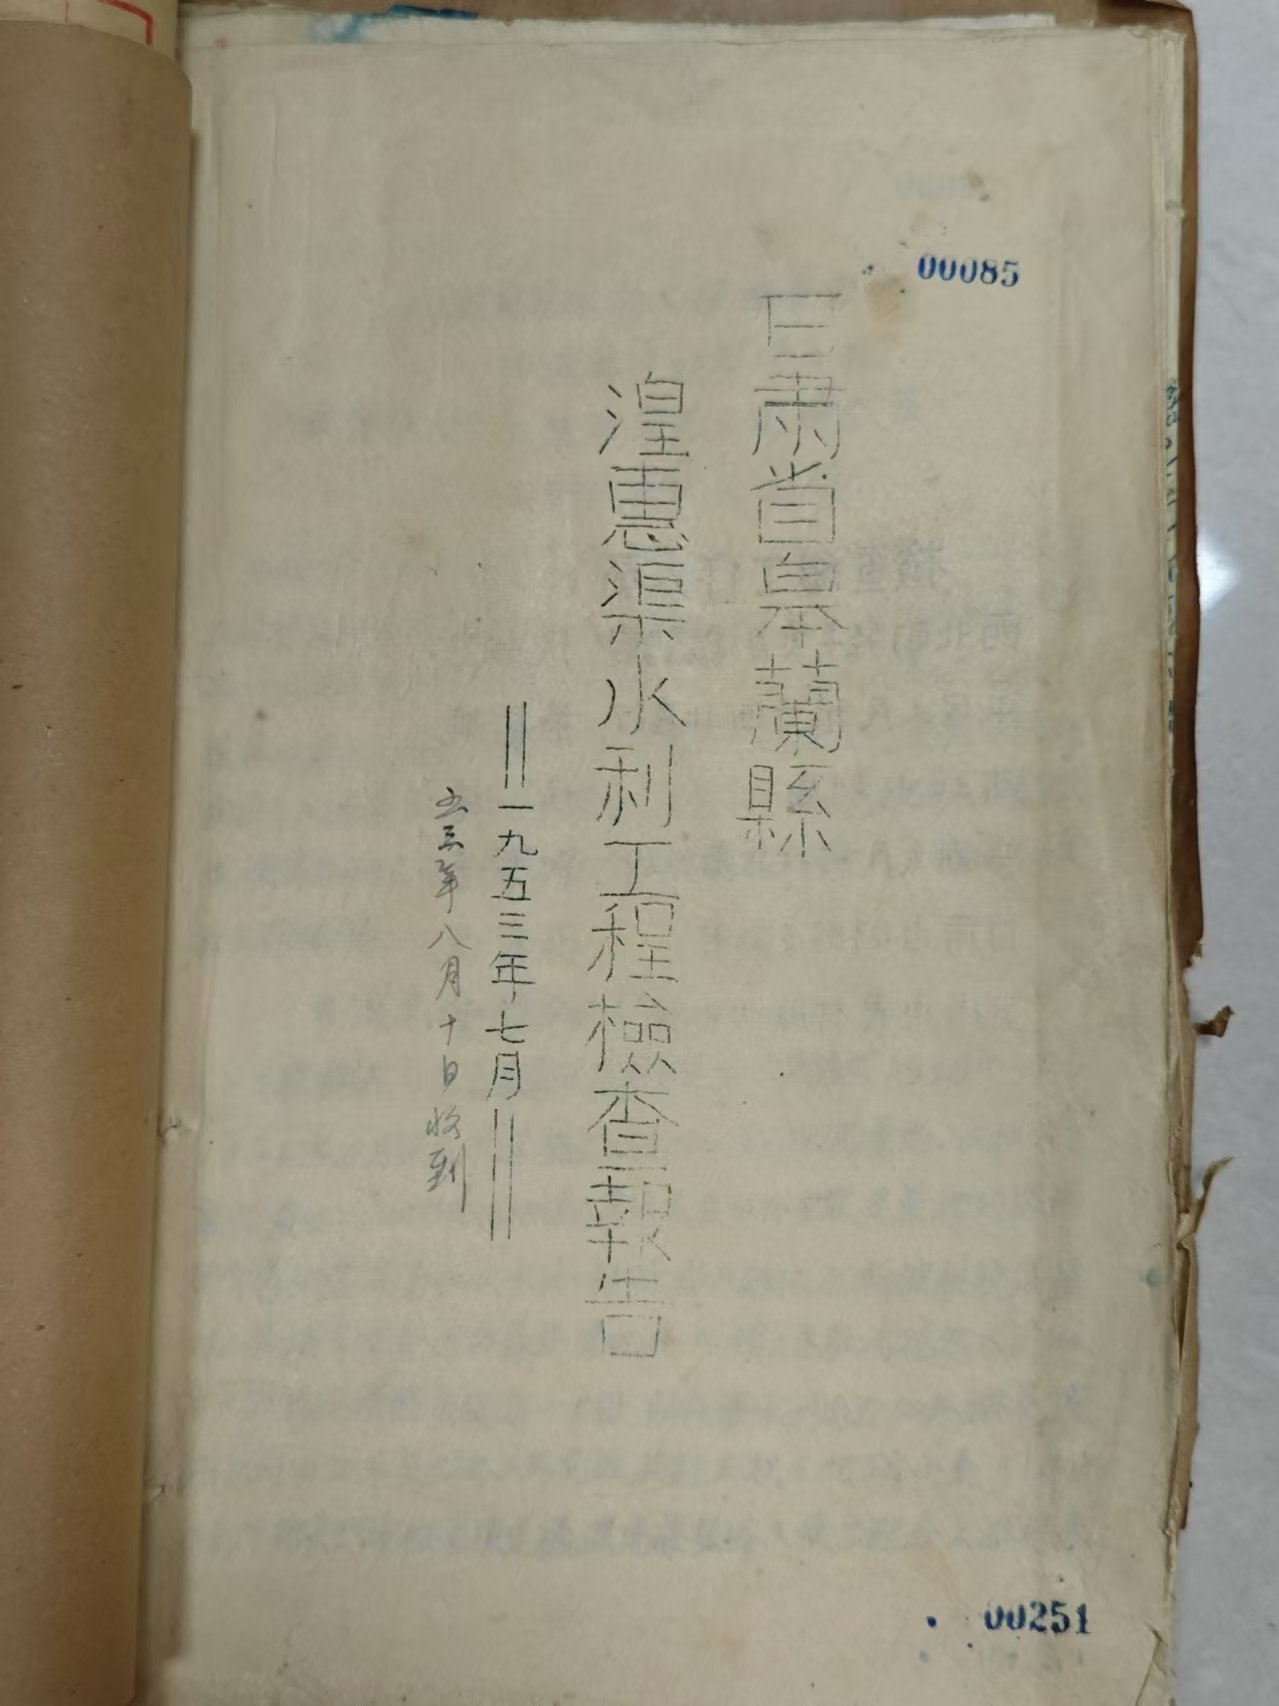 00085
甘肅省皋蘭縣
湟惠渠水利工程檢查報告
||一九五三年七月||
五三年八月十日收到
00251